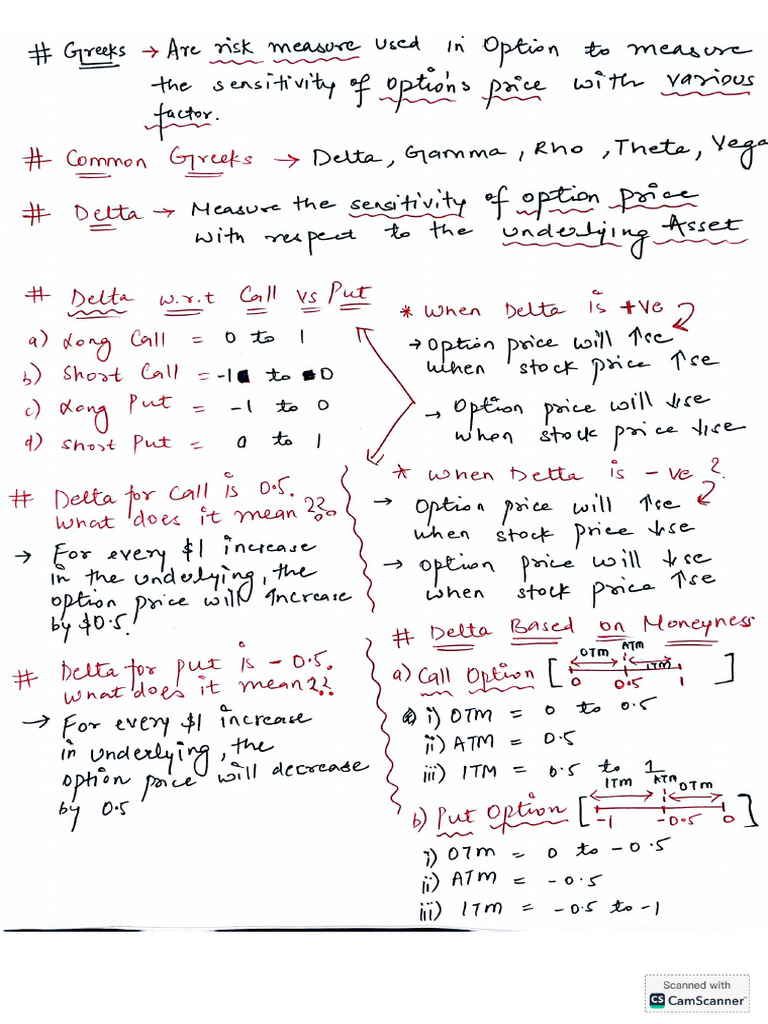 # Greeks → Are risk measure used in Option to measure
the sensitivity of option's price with various
factor.
# Common Greeks → Delta, Gamma, Rho, Theta, Vega
# Delta → Measure the sensitivity of option price
with respect to the underlying Asset
# Delta w.r.t Call vs Put
a) Long Call = 0 to 1
b) Short Call = -1 to 0
c) Long Put = -1 to 0
d) Short Put = 0 to 1
* When Delta is +ve ?
→ Option price will ↑se
when stock price ↑se
→ Option price will ↓se
when stock price ↓se
* When Delta is -ve ?
→ Option price will ↑se
when stock price ↓se
→ Option price will ↓se
when stock price ↑se
# Delta for call is 0.5.
What does it mean??
→ For every $1 increase
in the underlying, the
option price will increase
by $0.5.
# Delta for put is -0.5.
What does it mean??
→ For every $1 increase
in underlying, the
option price will decrease
by 0.5
# Delta Based on Moneyness
OTM ATM ITM
a) Call Option [ 0 0.5 1 ]
i) OTM = 0 to 0.5
ii) ATM = 0.5
iii) ITM = 0.5 to 1
ITM ATM OTM
b) Put Option [ -1 -0.5 0 ]
i) OTM = 0 to -0.5
ii) ATM = -0.5
iii) ITM = -0.5 to -1
Scanned with
CS CamScanner